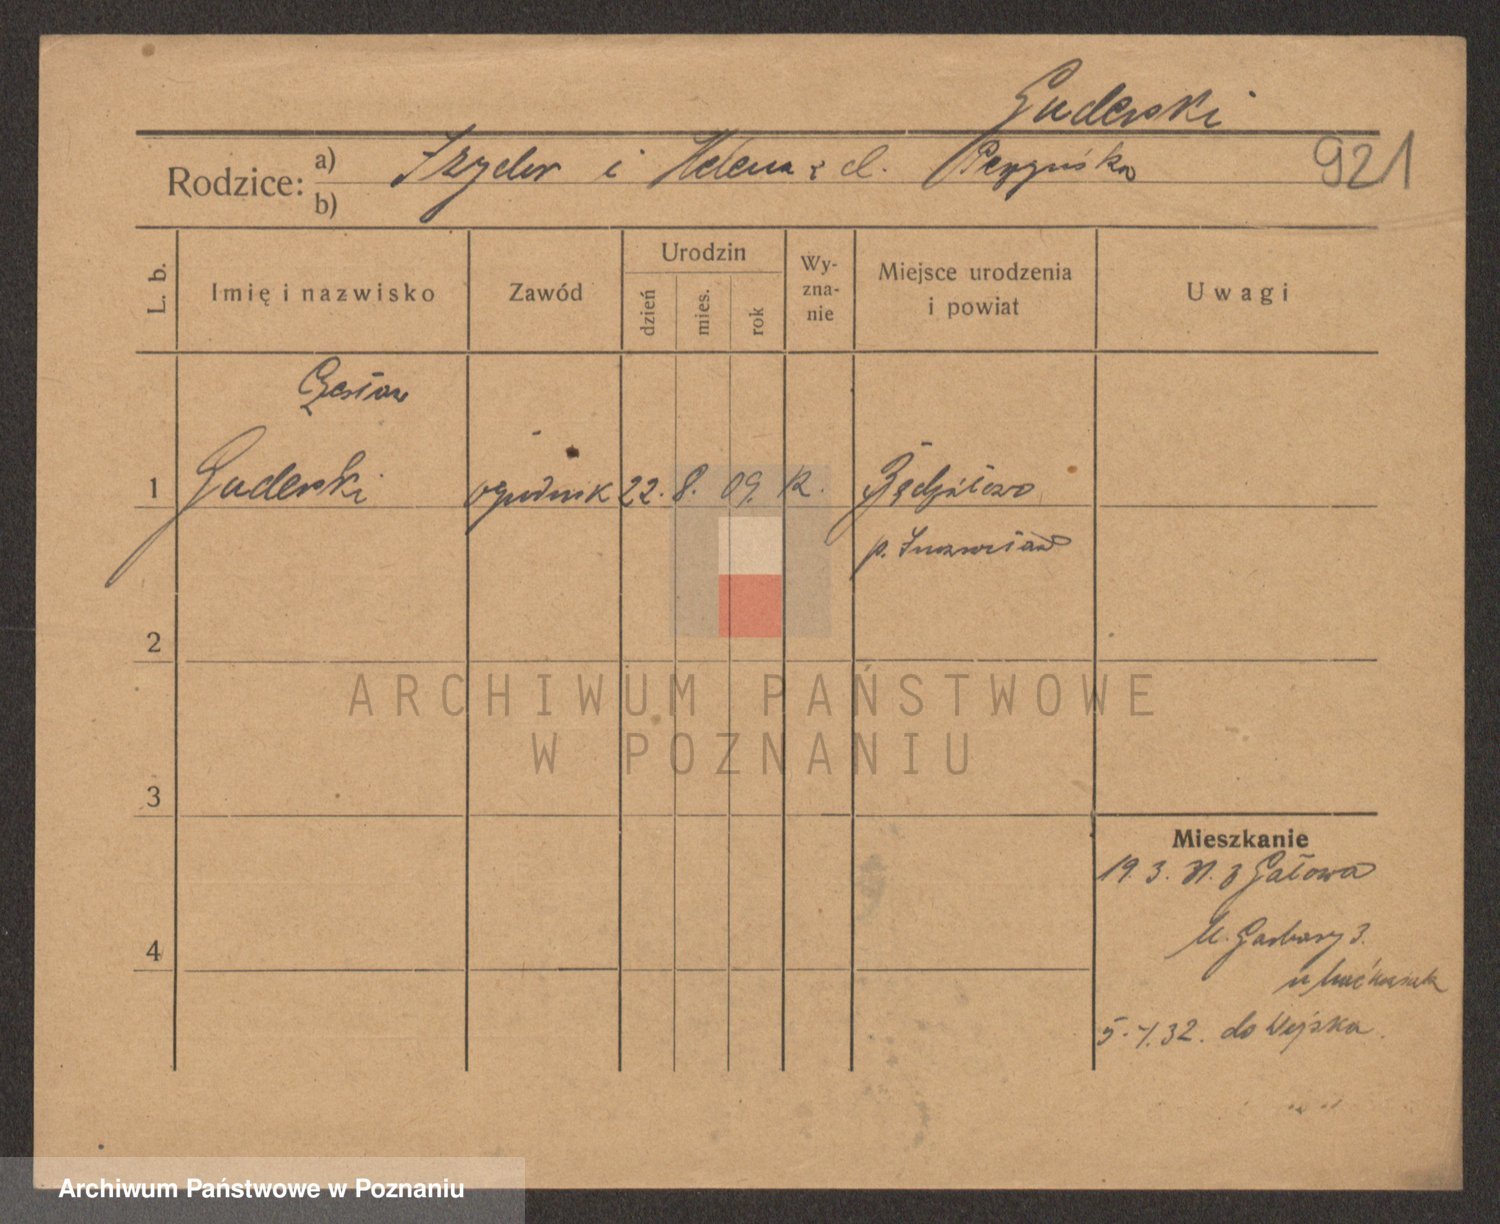 Guderski
Rodzice: a) Izydor i Helena z d.
b)
921
L. b.
Imię i nazwisko
Zawód
Urodzin
dzień
mies.
rok
Wy-
zna-
nie
Miejsce urodzenia
i powiat
Uwagi
Czesław
1 Guderski ogrodnik 22. 8. 09. k.
p. Inowrocław
2
3
4
Mieszkanie
19. 3. 31. z Gałowa
Ul. Garbary 3.
u
5. 1. 32. do Wojska.
ARCHIWUM PAŃSTWOWE
W POZNANIU
Archiwum Państwowe w Poznaniu